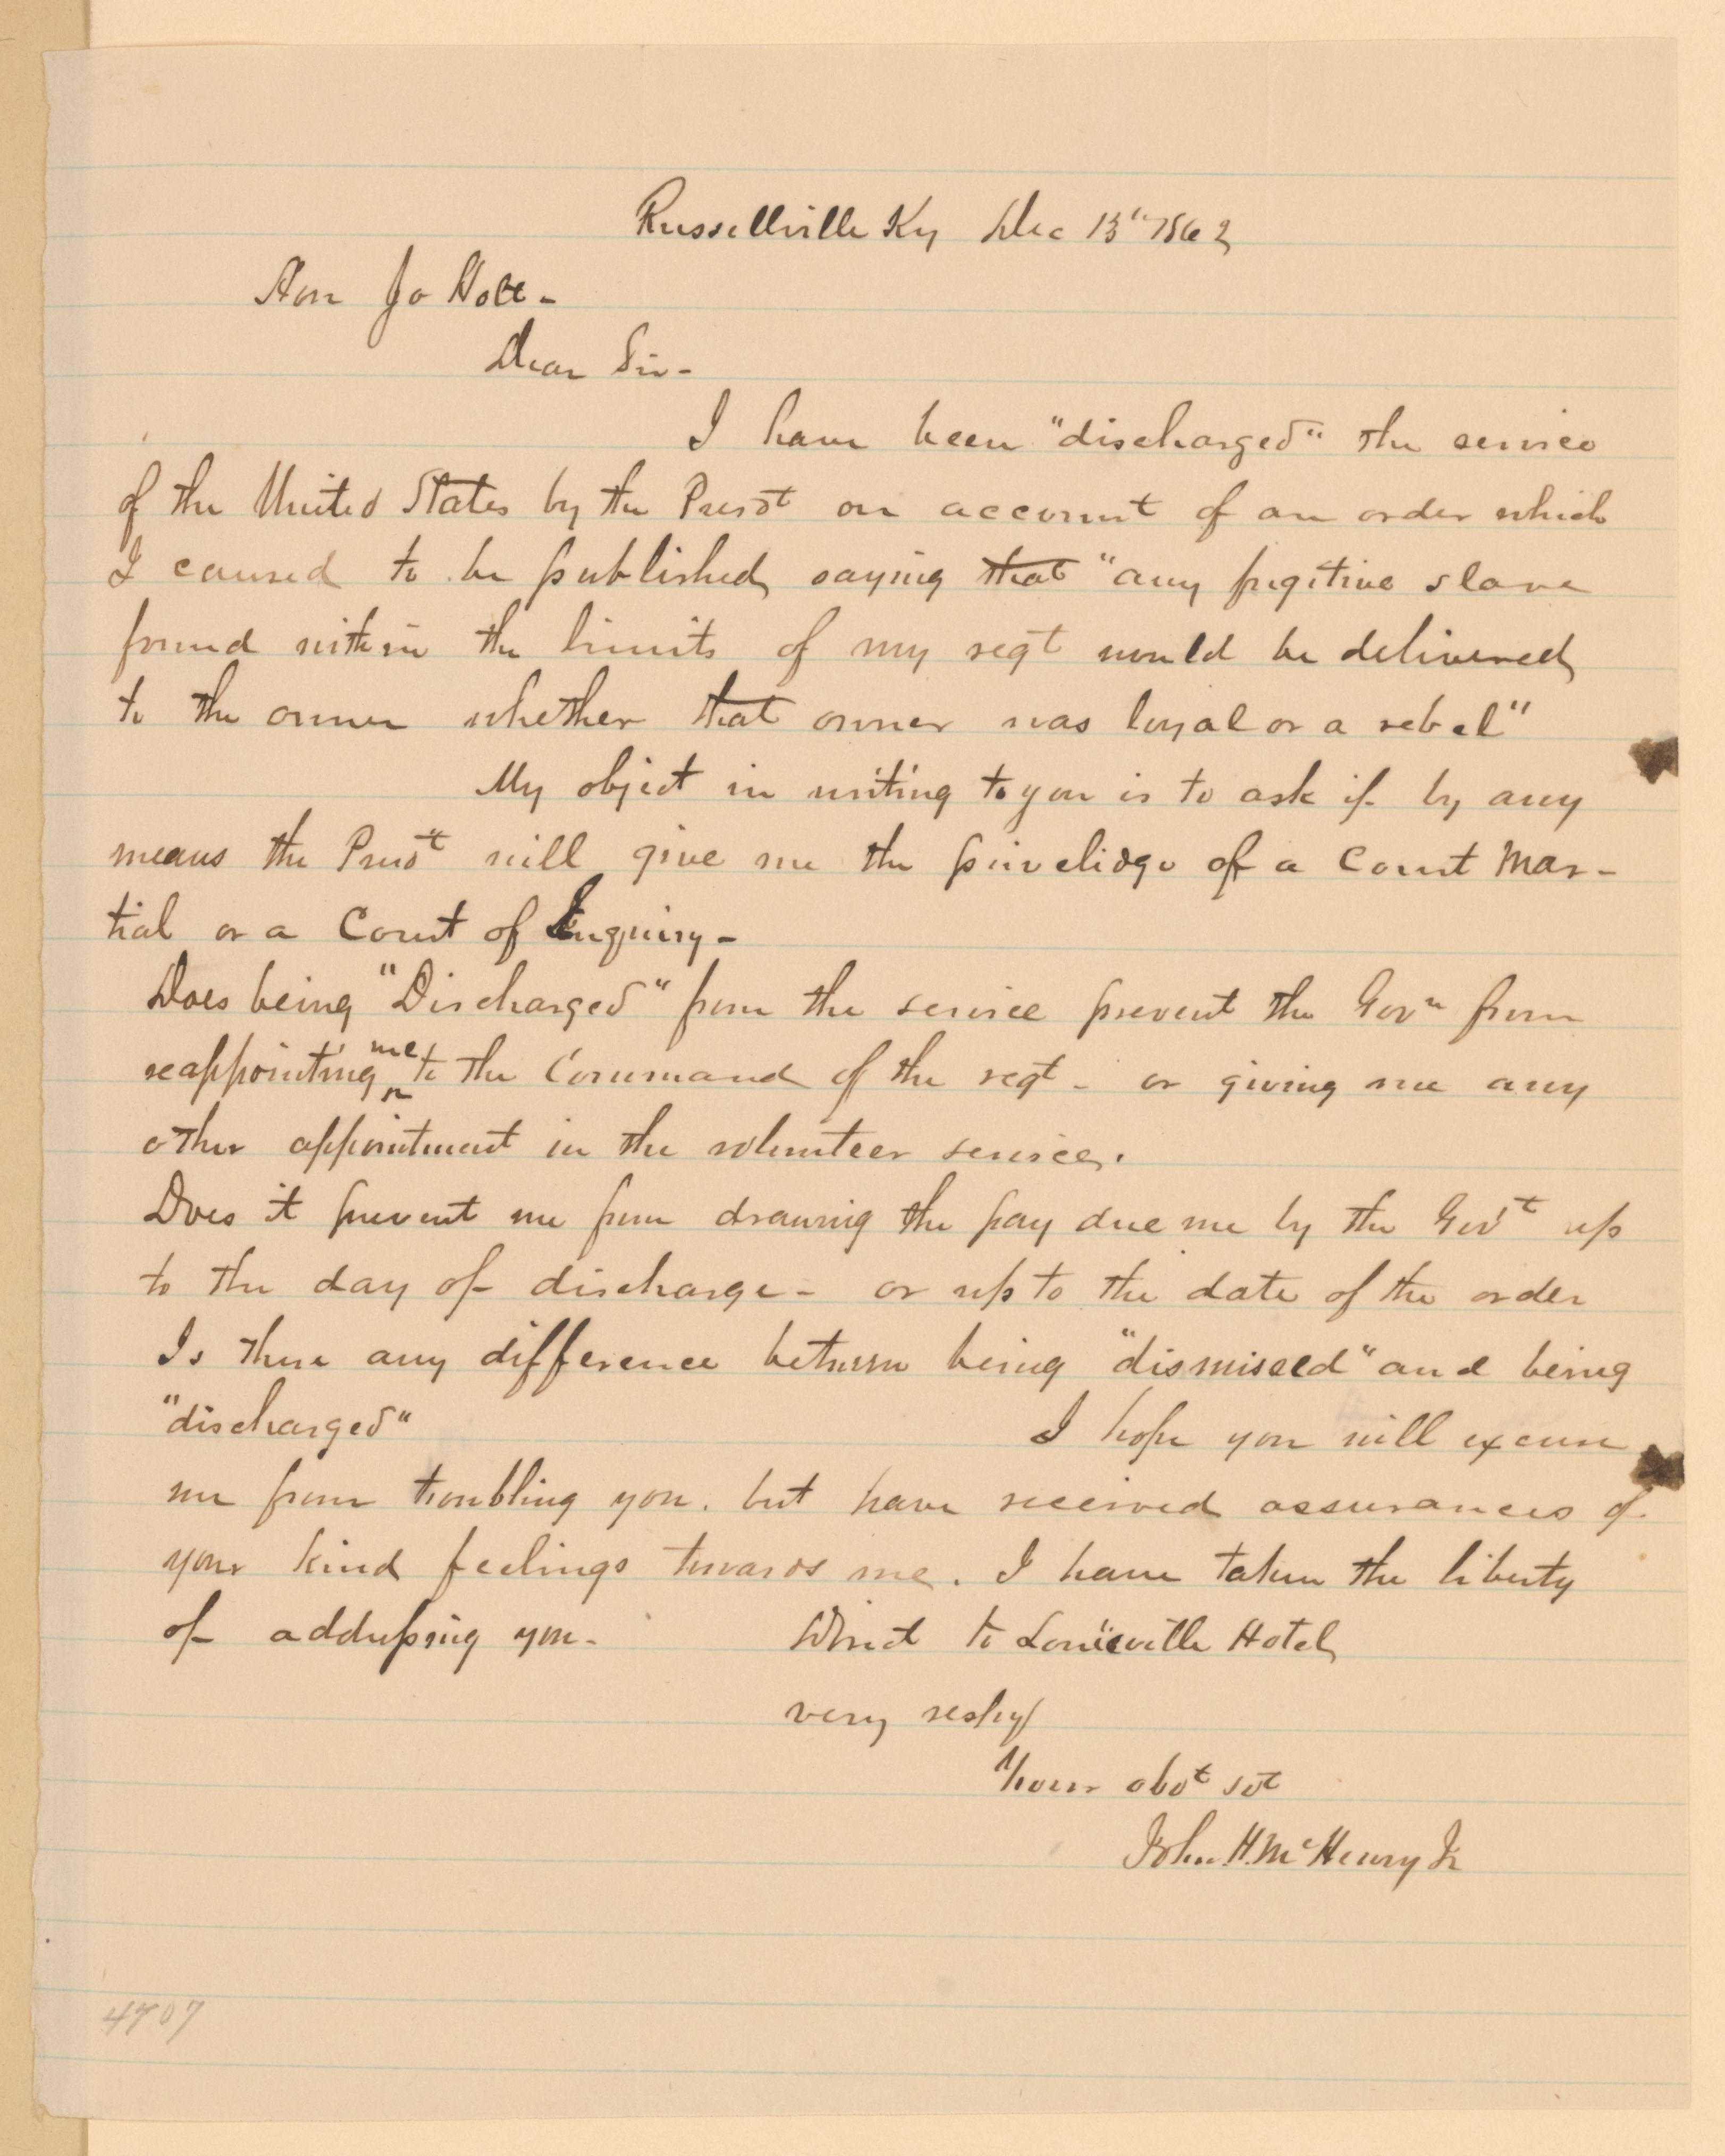 Russellville Ky Dec 13" 1862
Hon Jo Holt -
Dear Sir -
I have been "discharged" the service
of the United States by the Presdt on account of an order which
I caused to be published saying that "any fugitive slave
found within the limits of my regt would be delivered
to the owner whether that owner was loyal or a rebel"
My object in writing to you is to ask if by any
means the Presdt will give me the privelidge of a Court Mar-
tial or a Court of Enquiry -
Does being "Discharged" from the service prevent the Govr from
reappointing me to the Command of the regt - or giving me any
other appointment in the volunteer service.
Does it prevent me from drawing the pay due me by the Gov't up
to the day of discharge - or up to the date of the order
Is there any difference between being "dismissed" and being
"discharged"
I hope you will excuse
me from troubling you. but have received assurances of
your kind feelings towards me. I have taken the liberty
of addressing you - Direct to Louisville Hotel
very respy
Your obdt svt
John H. McHenry Jr
4707